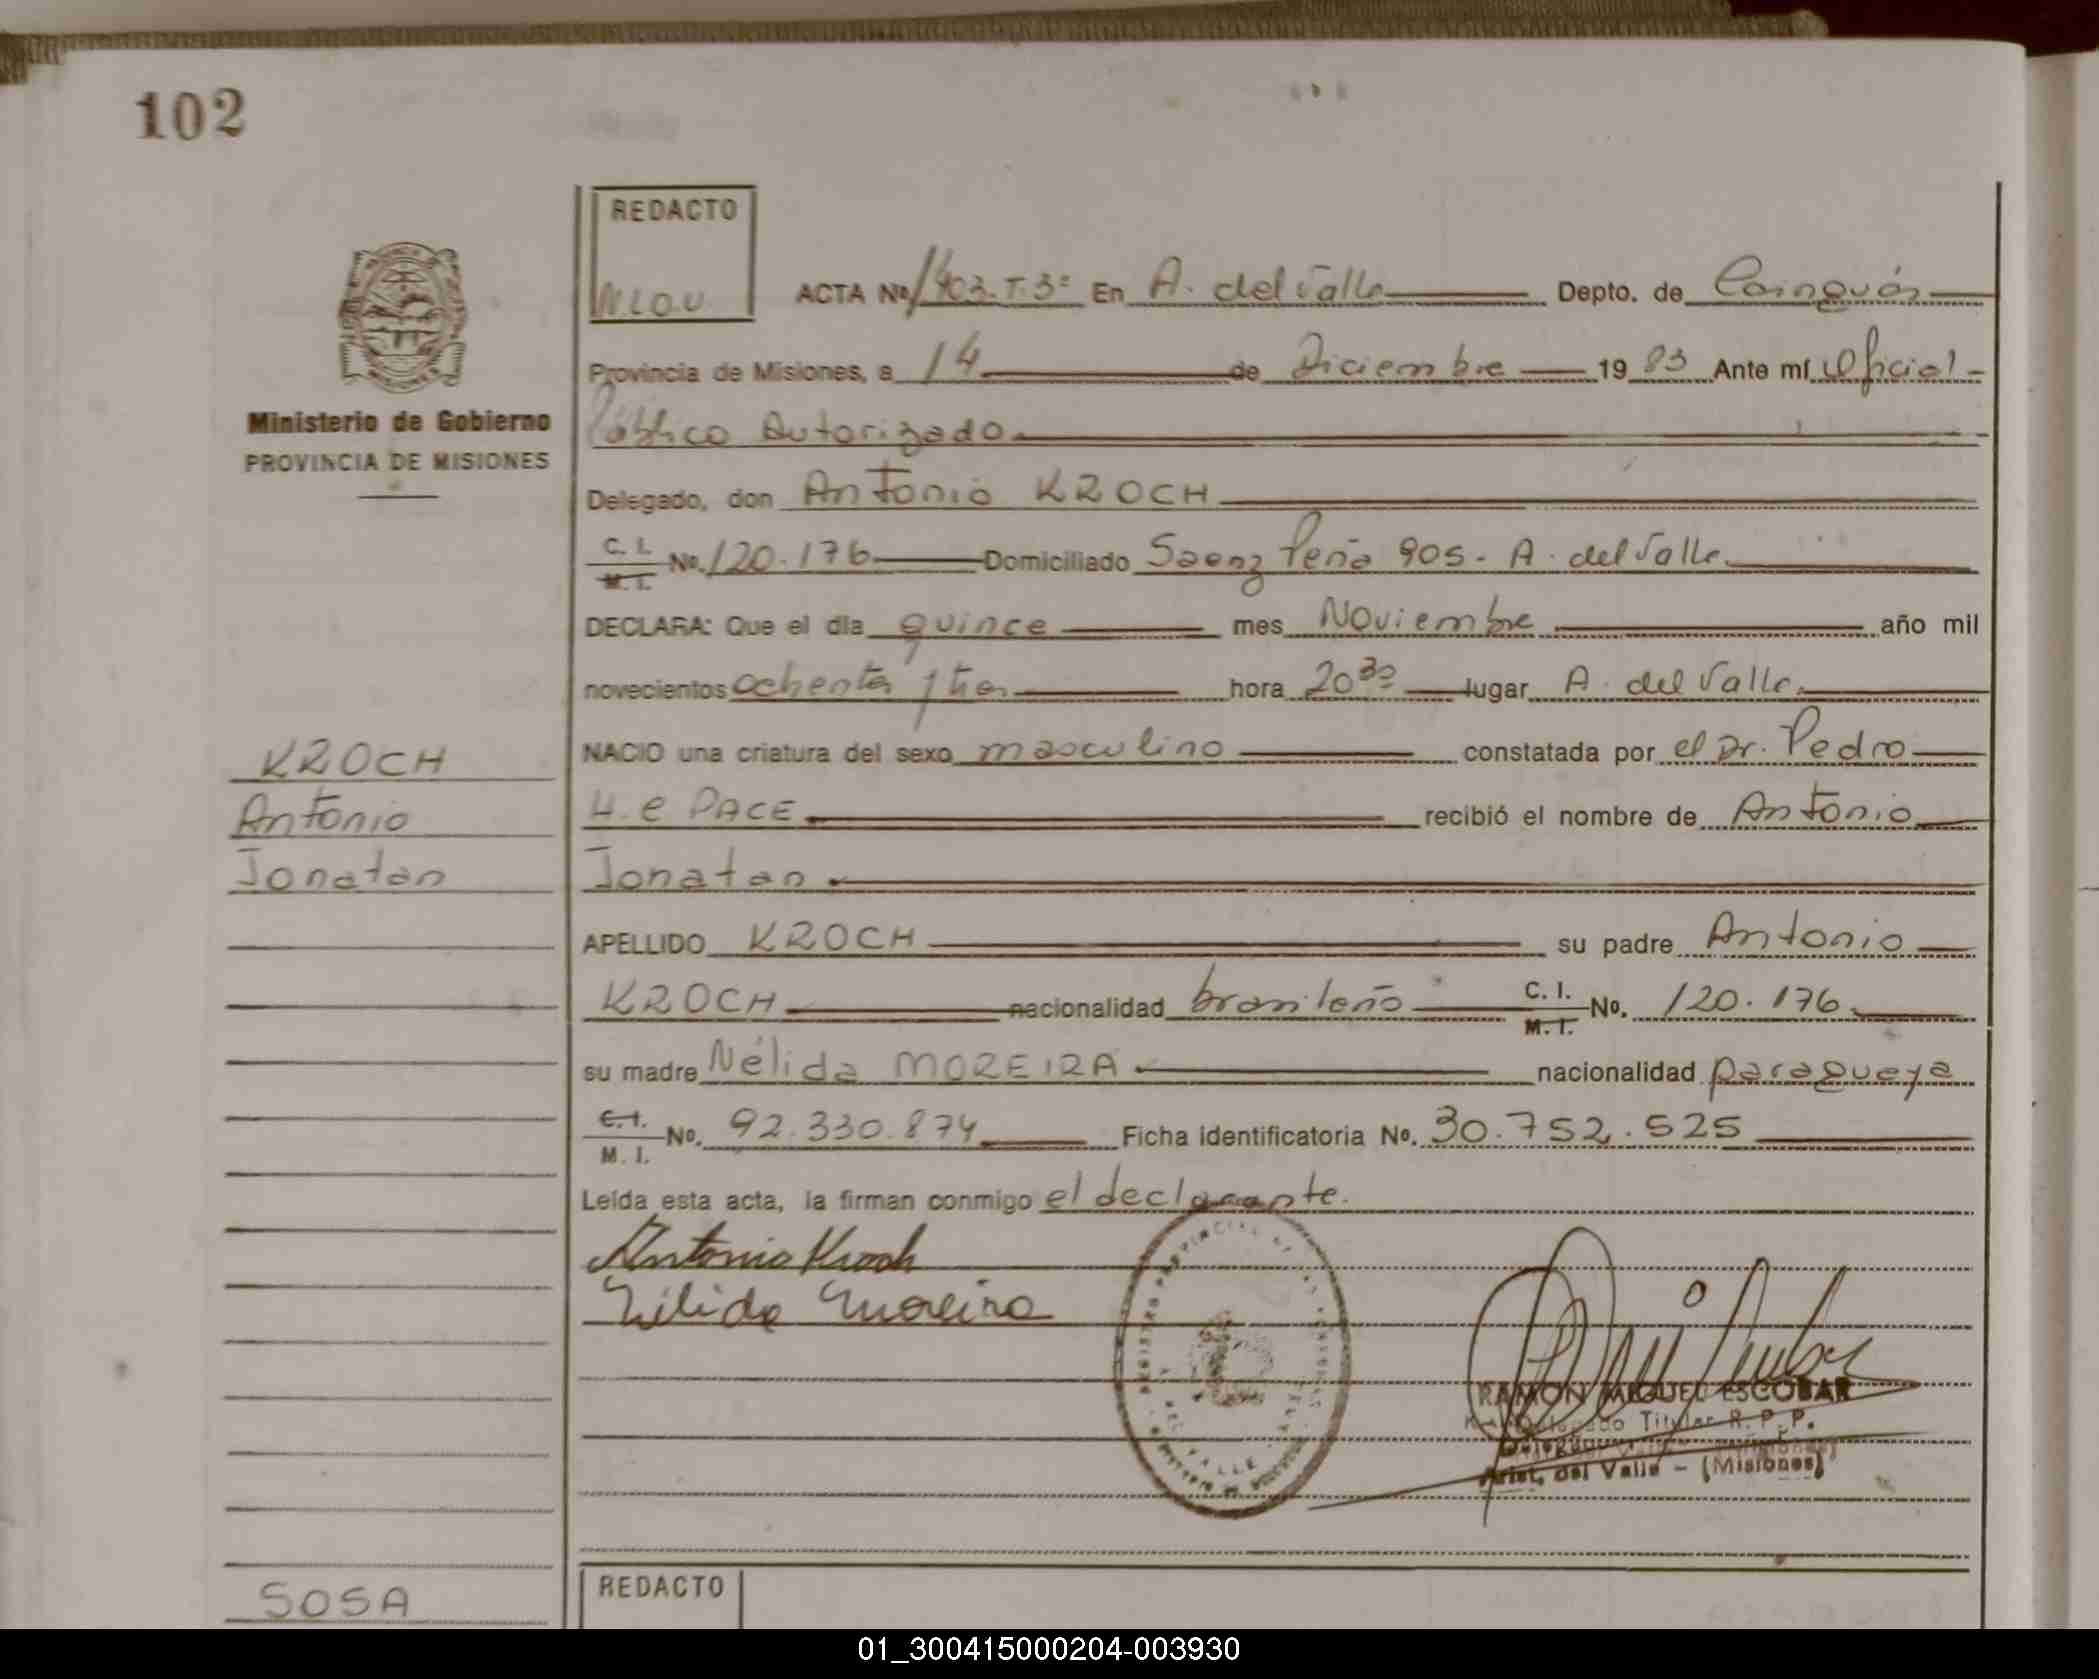 102
REDACTO
N.L.O.U
ACTA Nº 1403.T.3º En A. del Valle Depto. de Cainguás
Provincia de Misiones, a 14 de Diciembre 1983 Ante mí Oficial
Ministerio de Gobierno
Público Autorizado
PROVINCIA DE MISIONES
Delegado, don Antonio KROCH
C. I. M. I. No. 120.176 Domiciliado Saenz Peña 905 - A. del Valle
DECLARA: Que el día quince mes Noviembre año mil
novecientos ochenta y tres hora 20 30 lugar A. del Valle
NACIO una criatura del sexo masculino constatada por el Dr. Pedro
KROCH
H. e PACE recibió el nombre de Antonio
Antonio
Jonatan
Jonatan
APELLIDO KROCH su padre Antonio
KROCH nacionalidad brasileño C. I. M. I. No. 120.176
su madre Nélida MOREIRA nacionalidad paraguaya
C. I. M. I. No. 92.330.874 Ficha identificatoria No. 30.752.525
Leída esta acta, la firman conmigo el declarante.
Antonio Kroch
Nélida Moreira
RAMON MIGUEL ESCOBAR
Delegado Titular R. P. P.
Arist. del Valle - (Misiones)
SOSA
REDACTO
01_300415000204-003930